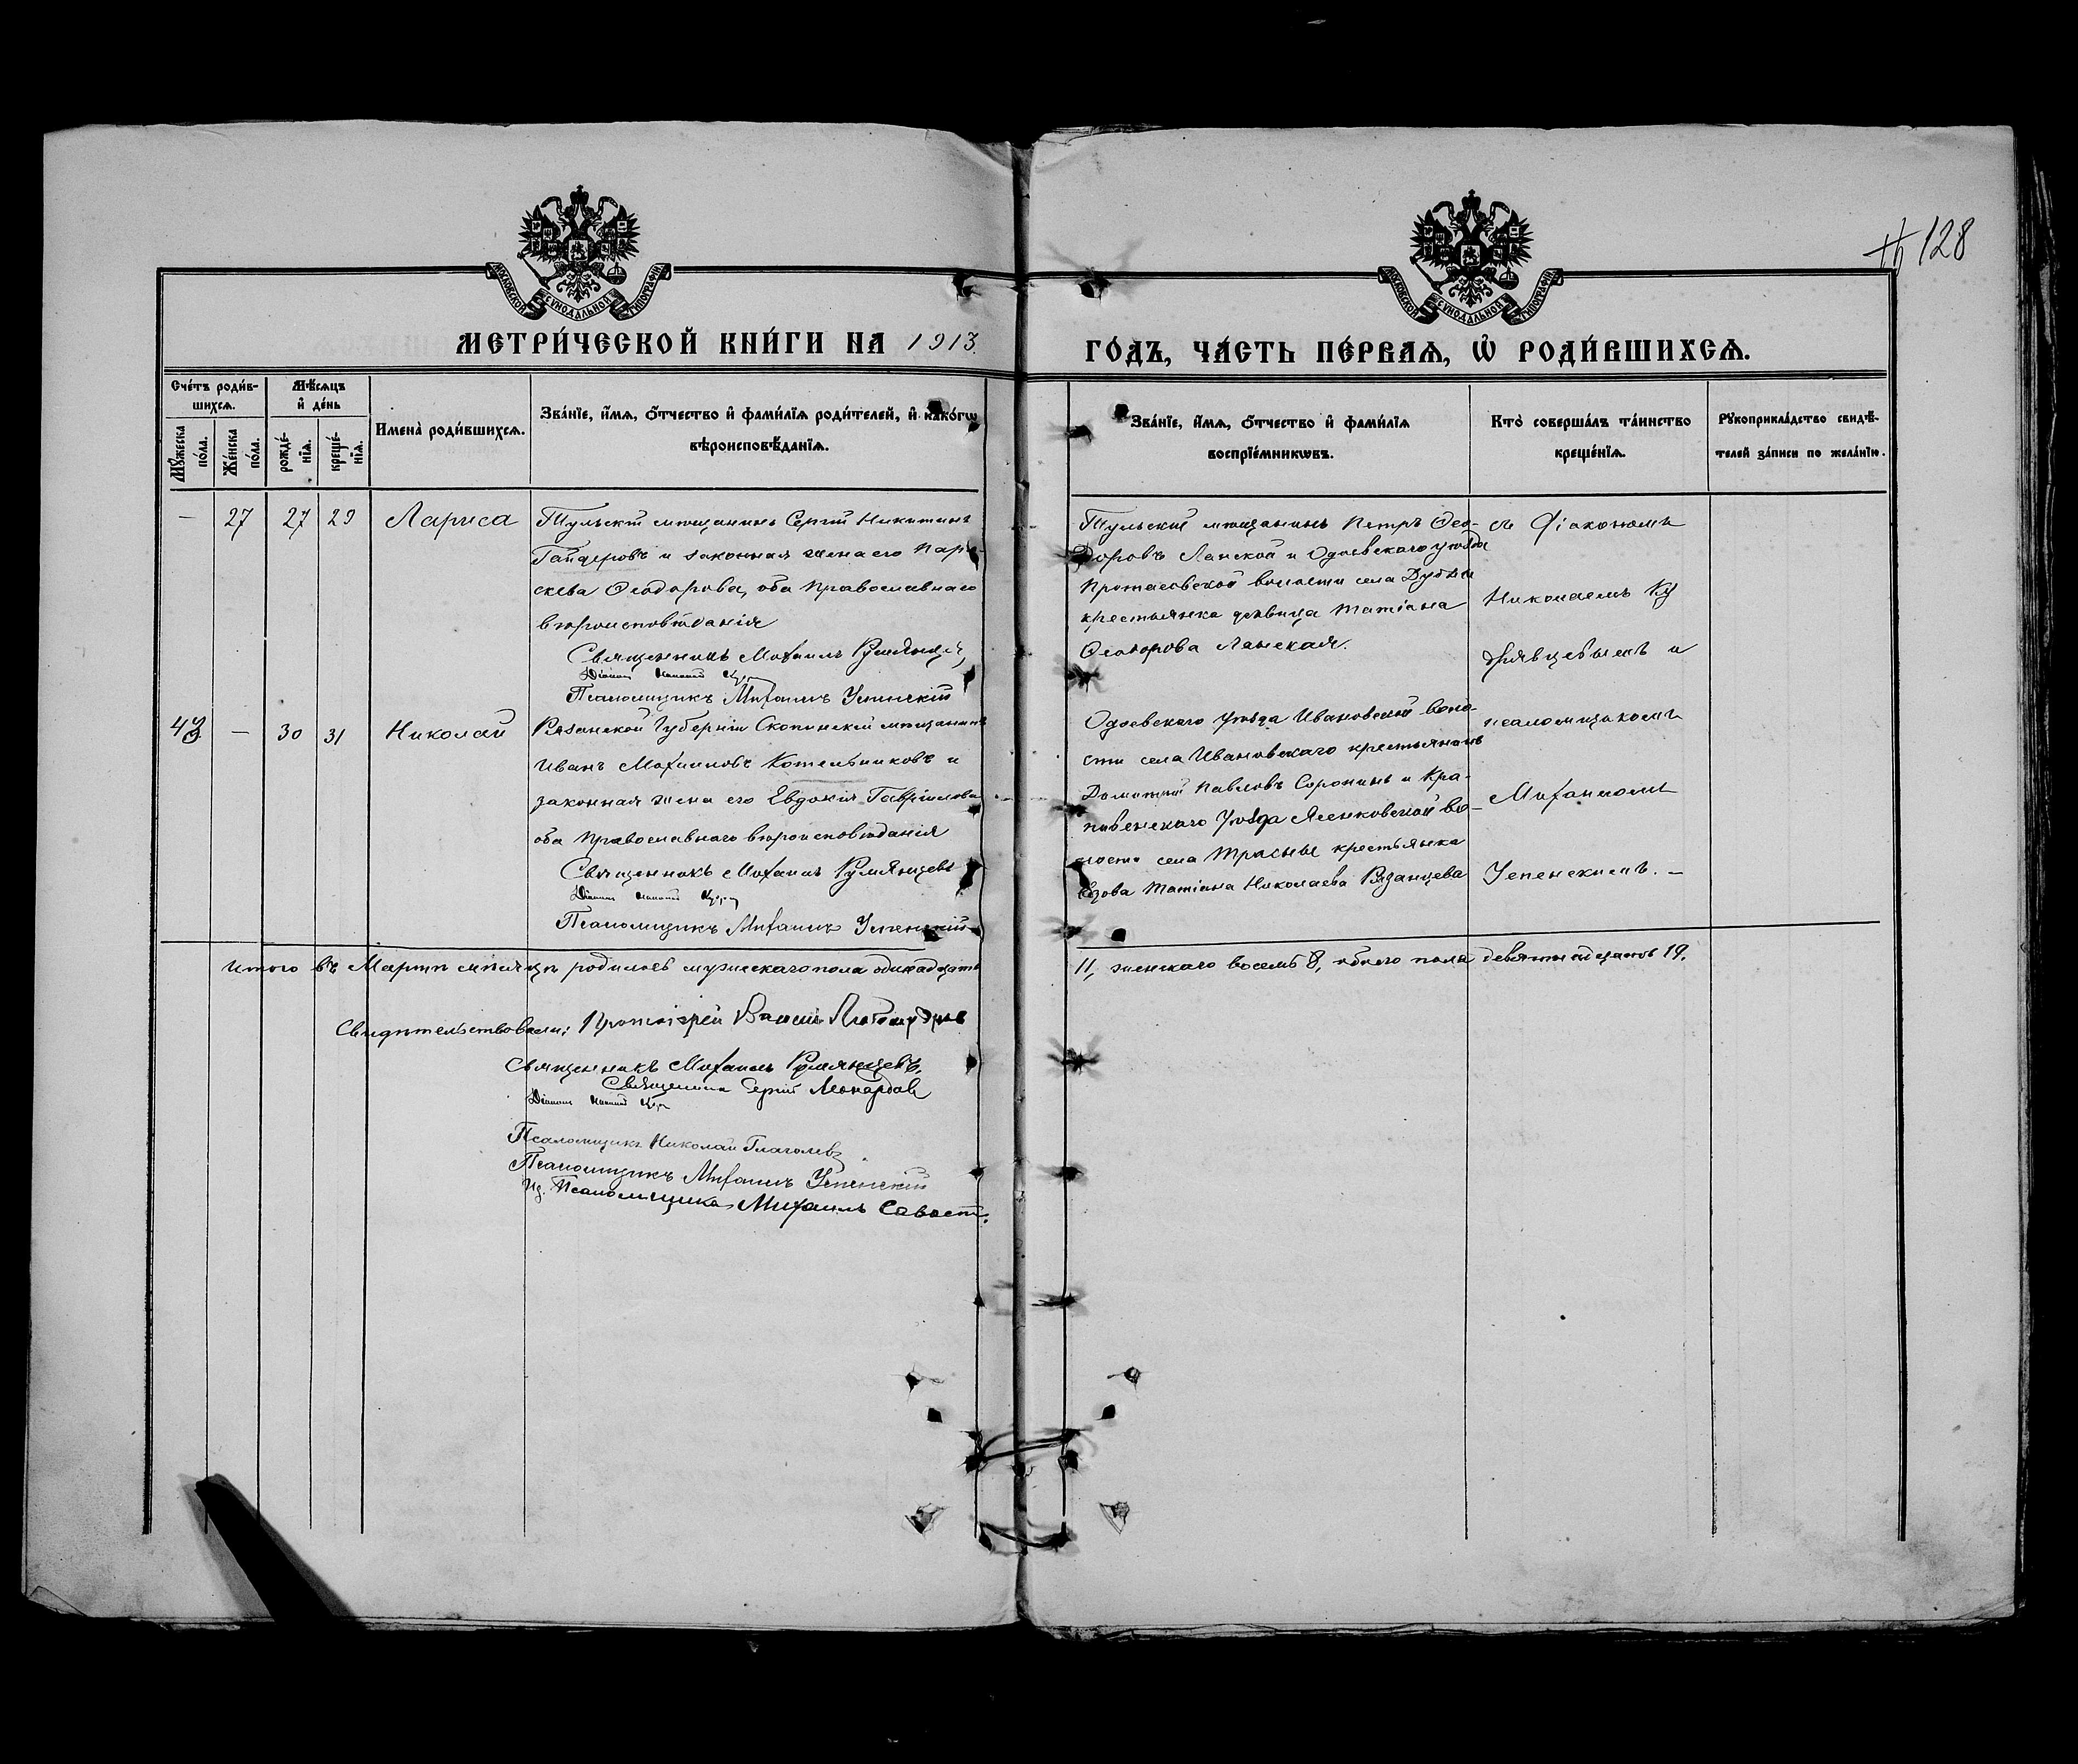 128
МОСКОВСКОЙ СУНОДАЛЬНОЙ ТИПОГРАФІИ
МОСКОВСКОЙ СУНОДАЛЬНОЙ ТИПОГРАФІИ
МЕТРИ́ЧЕСКОЙ КНИ́ГИ НА 1913
ГО́ДЪ, ЧА́СТЬ ПЕ́РВАЯ, Ѡ҆ РОДИ́ВШИХСЯ.
Сче́тъ роди́в-
шихсѧ.
Мѣ́сѧцъ
и҆ де́нь
Мꙋ́жеска
по́ла.
Же́нска
по́ла.
рожде́-
нїѧ.
креще́-
нїѧ.
Имена̀ роди́вшихсѧ.
Зва́нїе, и҆́мѧ, ѻ҆́тчество и҆ фами́лїѧ роди́телей, и҆ како́гѡ
вѣроисповѣ́данїѧ.
Зва́нїе, и҆́мѧ, ѻ҆́тчество и҆ фами́лїѧ
воспрїе́мникѡвъ.
Кто̀ соверша́лъ та́инство
креще́нїѧ.
Рꙋкоприкла́дство свидѣ́-
телей за́писи по жела́нїю.
— 27 27 29 Лариса
Тульскій мѣщанинъ Сергій Никитинъ
Гайдеровъ и законная жена его Пара-
скева Ѳеодорова, оба Православнаго
вѣроисповѣданія
Священникъ Михаилъ Румянцевъ
Діаконъ Николай
Псаломщикъ Михаилъ Успенскій
Тульскій мѣщанинъ Петръ Ѳео-
доровъ Ланской и Одоевскаго уѣзда
Протасовской волости села Дубки
крестьянка дѣвица Татіана
Ѳеодорова Ланская.
съ Діакономъ
Николаемъ Ку
дрявцевымъ и
43 — 30 31 Николай
Рязанской Губерніи Скопинскій мѣщанинъ
Иванъ Михаиловъ Котельниковъ и
законная жена его Евдокія Гавріилова
оба Православнаго вѣроисповѣданія
Священникъ Михаилъ Румянцевъ
Діаконъ Николай
Псаломщикъ Михаилъ Успенскій
Одоевскаго уѣзда Ивановской воло-
сти села Ивановскаго крестьянинъ
Димитрій Павловъ Соронинъ и Кра-
пивенскаго Уѣзда Ясенковской во-
лости села крестьянка
вдова Татіана Николаева Рязанцева
псаломщикомъ
Михаиломъ
Успенскимъ. —
Итого въ Мартѣ мѣсяцѣ родилось мужескаго пола одинадцать
11, женскаго восемь 8, обоего пола девятнадцать 19.
Свидѣтельствовали: Протоіерей
Священникъ Михаилъ Румянцевъ,
Священникъ Сергій Леонардовъ
Діаконъ Николай
Псаломщикъ Николай Глаголевъ
Псаломщикъ Михаилъ Успенскій
Псаломщика Михаилъ